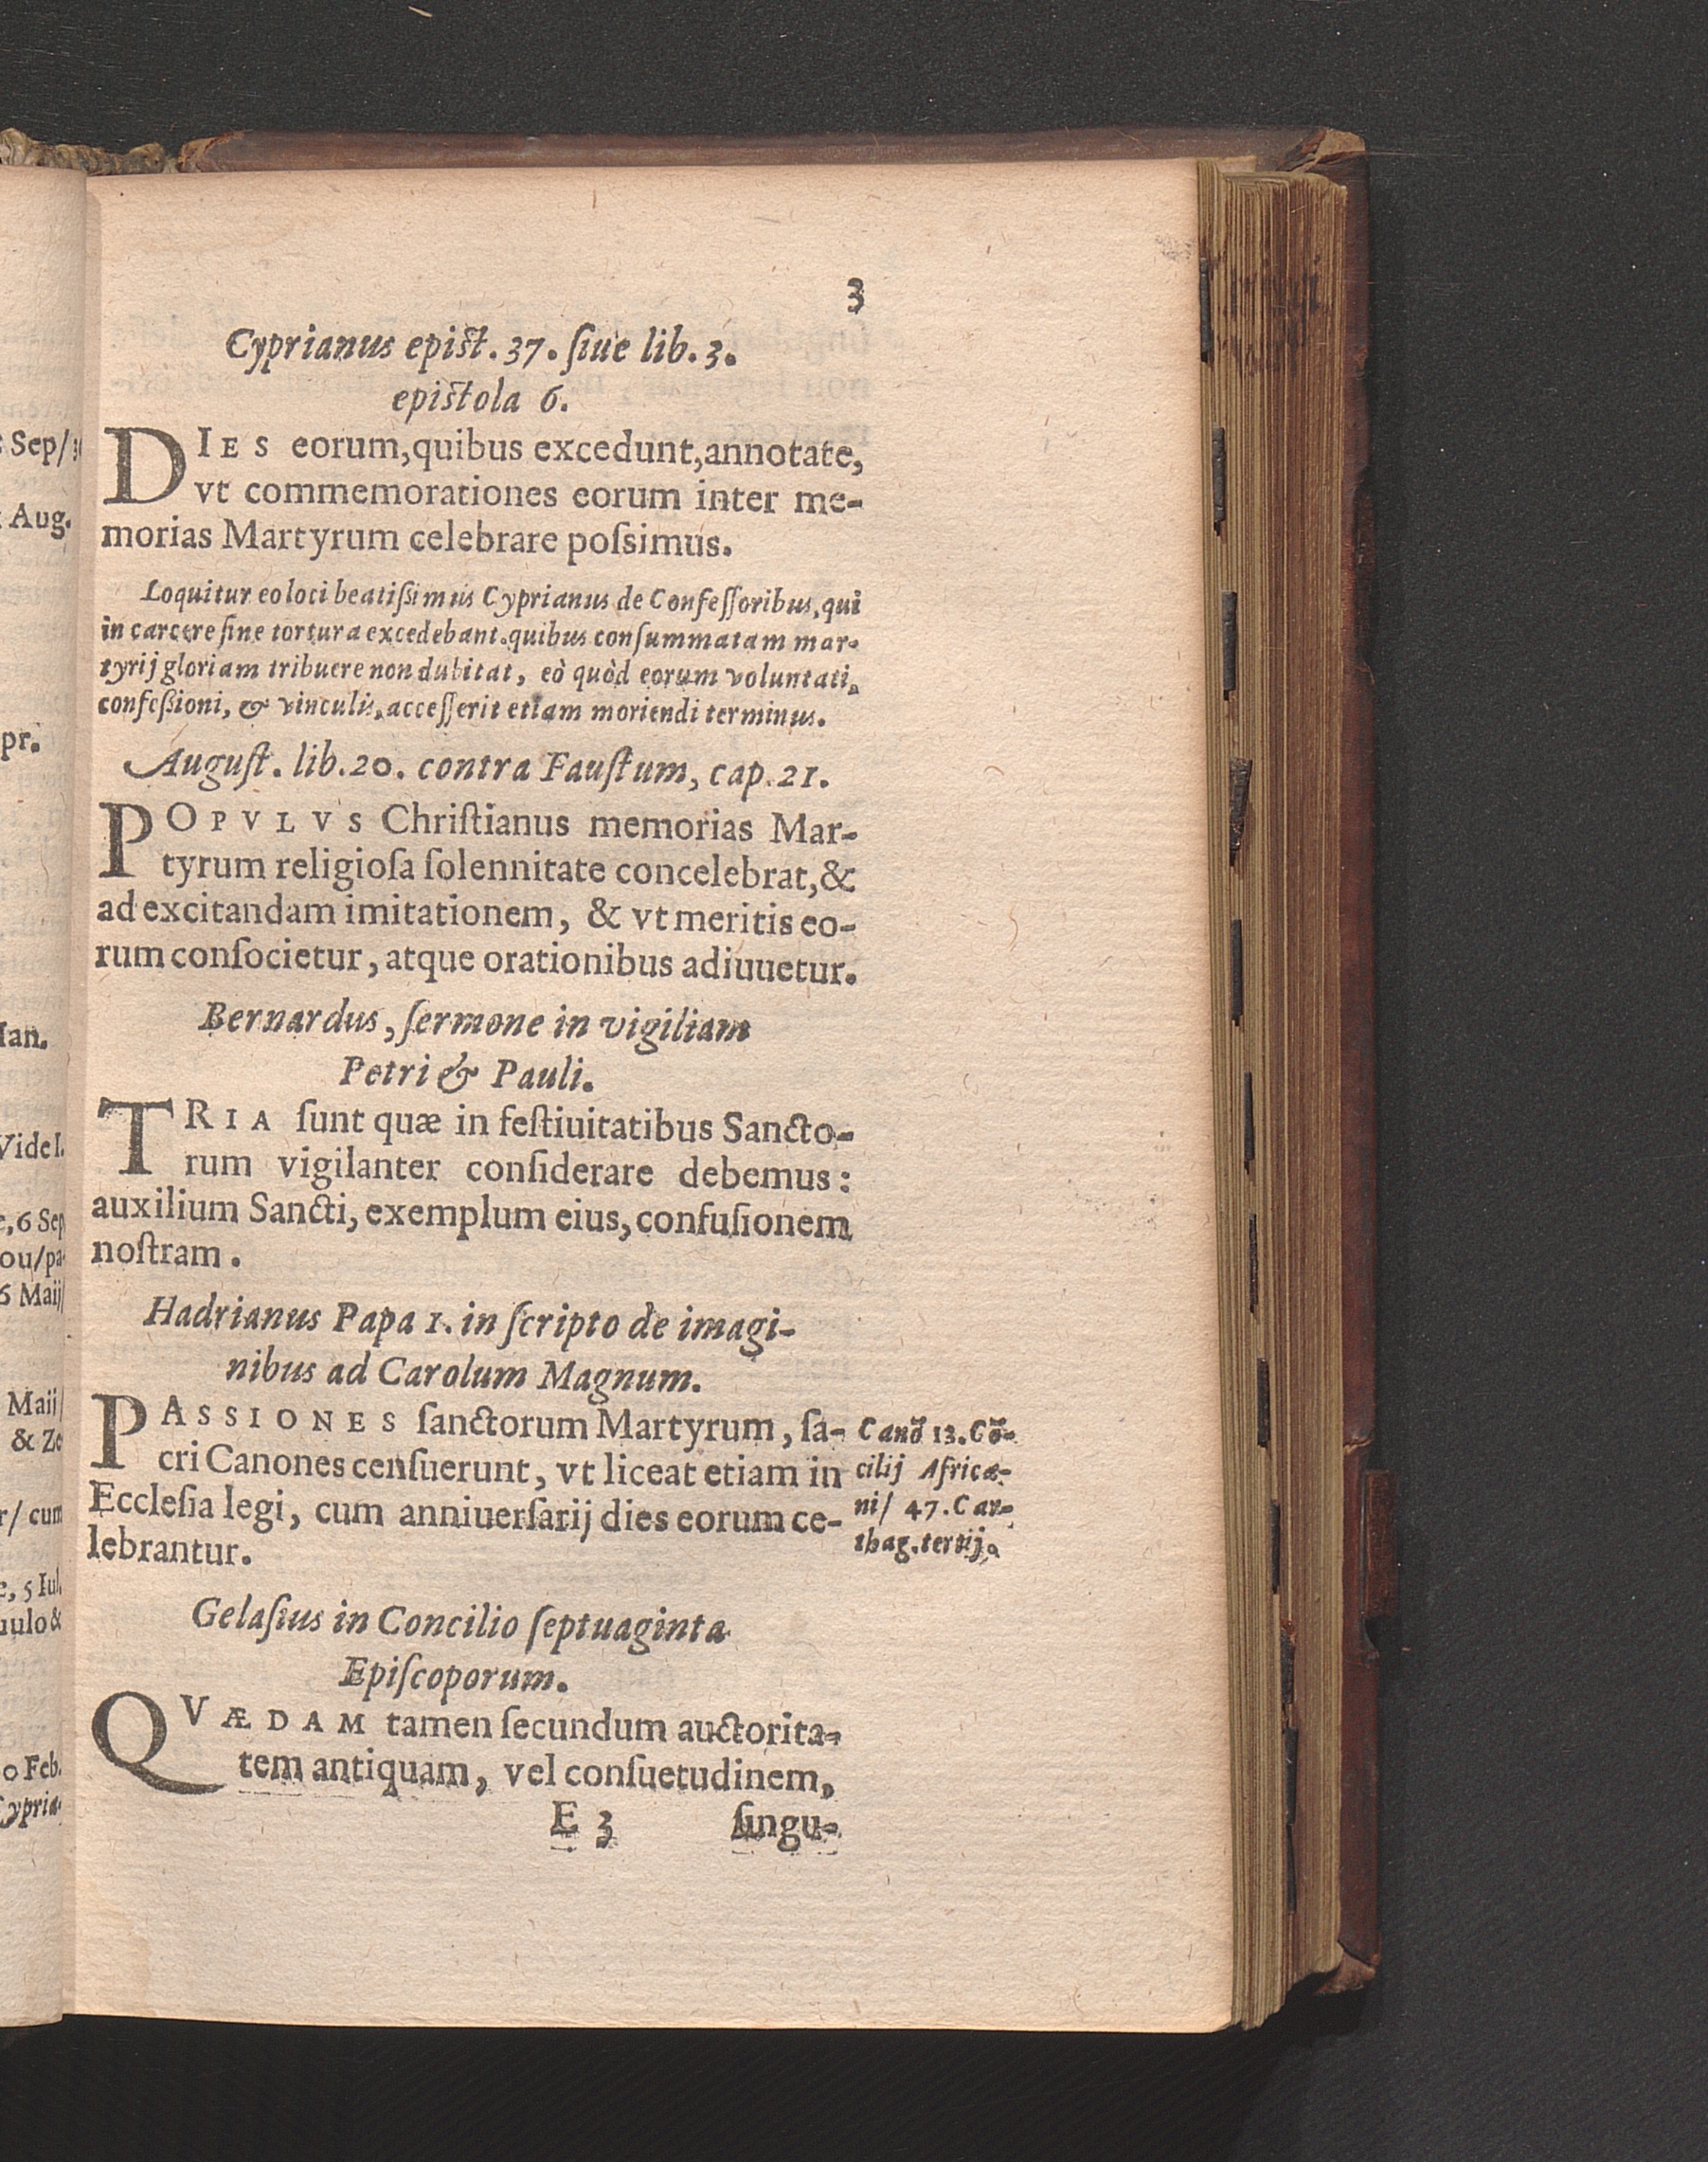 3
Cyprianus epist. 37. ſiue lib. 3.
epistola 6.
DIES eorum, quibus excedunt, annotate,
vt commemorationes eorum inter me-
morias Martyrum celebrare poſsimus.
Loquitur eo loci beatiſsimus Cyprianus de Confeſſoribus, qui
in carcere ſine tortura excedebant. quibus conſummatam mar-
tyrij gloriam tribuere non dubitat, eò quòd eorum voluntati,
confeſsioni, & vinculis, acceſſerit etiam moriendi terminus.
Auguſt. lib. 20. contra Fauſtum, cap. 21.
POPVLVS Chriſtianus memorias Mar-
tyrum religioſa ſolennitate concelebrat, &
ad excitandam imitationem, & vt meritis eo-
rum conſocietur, atque orationibus adiuuetur.
Bernardus, ſermone in vigiliam
Petri & Pauli.
TRIA ſunt quæ in feſtiuitatibus Sancto-
rum vigilanter conſiderare debemus:
auxilium Sancti, exemplum eius, confuſionem
noſtram.
Hadrianus Papa 1. in ſcripto de imagi-
nibus ad Carolum Magnum.
PASSIONES ſanctorum Martyrum, ſa-
cri Canones cenſuerunt, vt liceat etiam in
Eccleſia legi, cum anniuerſarij dies eorum ce-
lebrantur.
Canō 13. Cō-
cilij Africa-
ni/ 47. Car-
thag. tertij.
Gelaſius in Concilio ſeptuaginta
Epiſcoporum.
QVÆDAM tamen ſecundum auctorita-
tem antiquam, vel conſuetudinem,
E 3 ſingu-
Sep/
Aug.
pr.
Ian.
Vide I.
e, 6 Sep
ou/pa-
6 Maij/
Maij/
& Ze
r/ cum
e, 5 Iul.
uulo &
0 Feb.
Cypria-